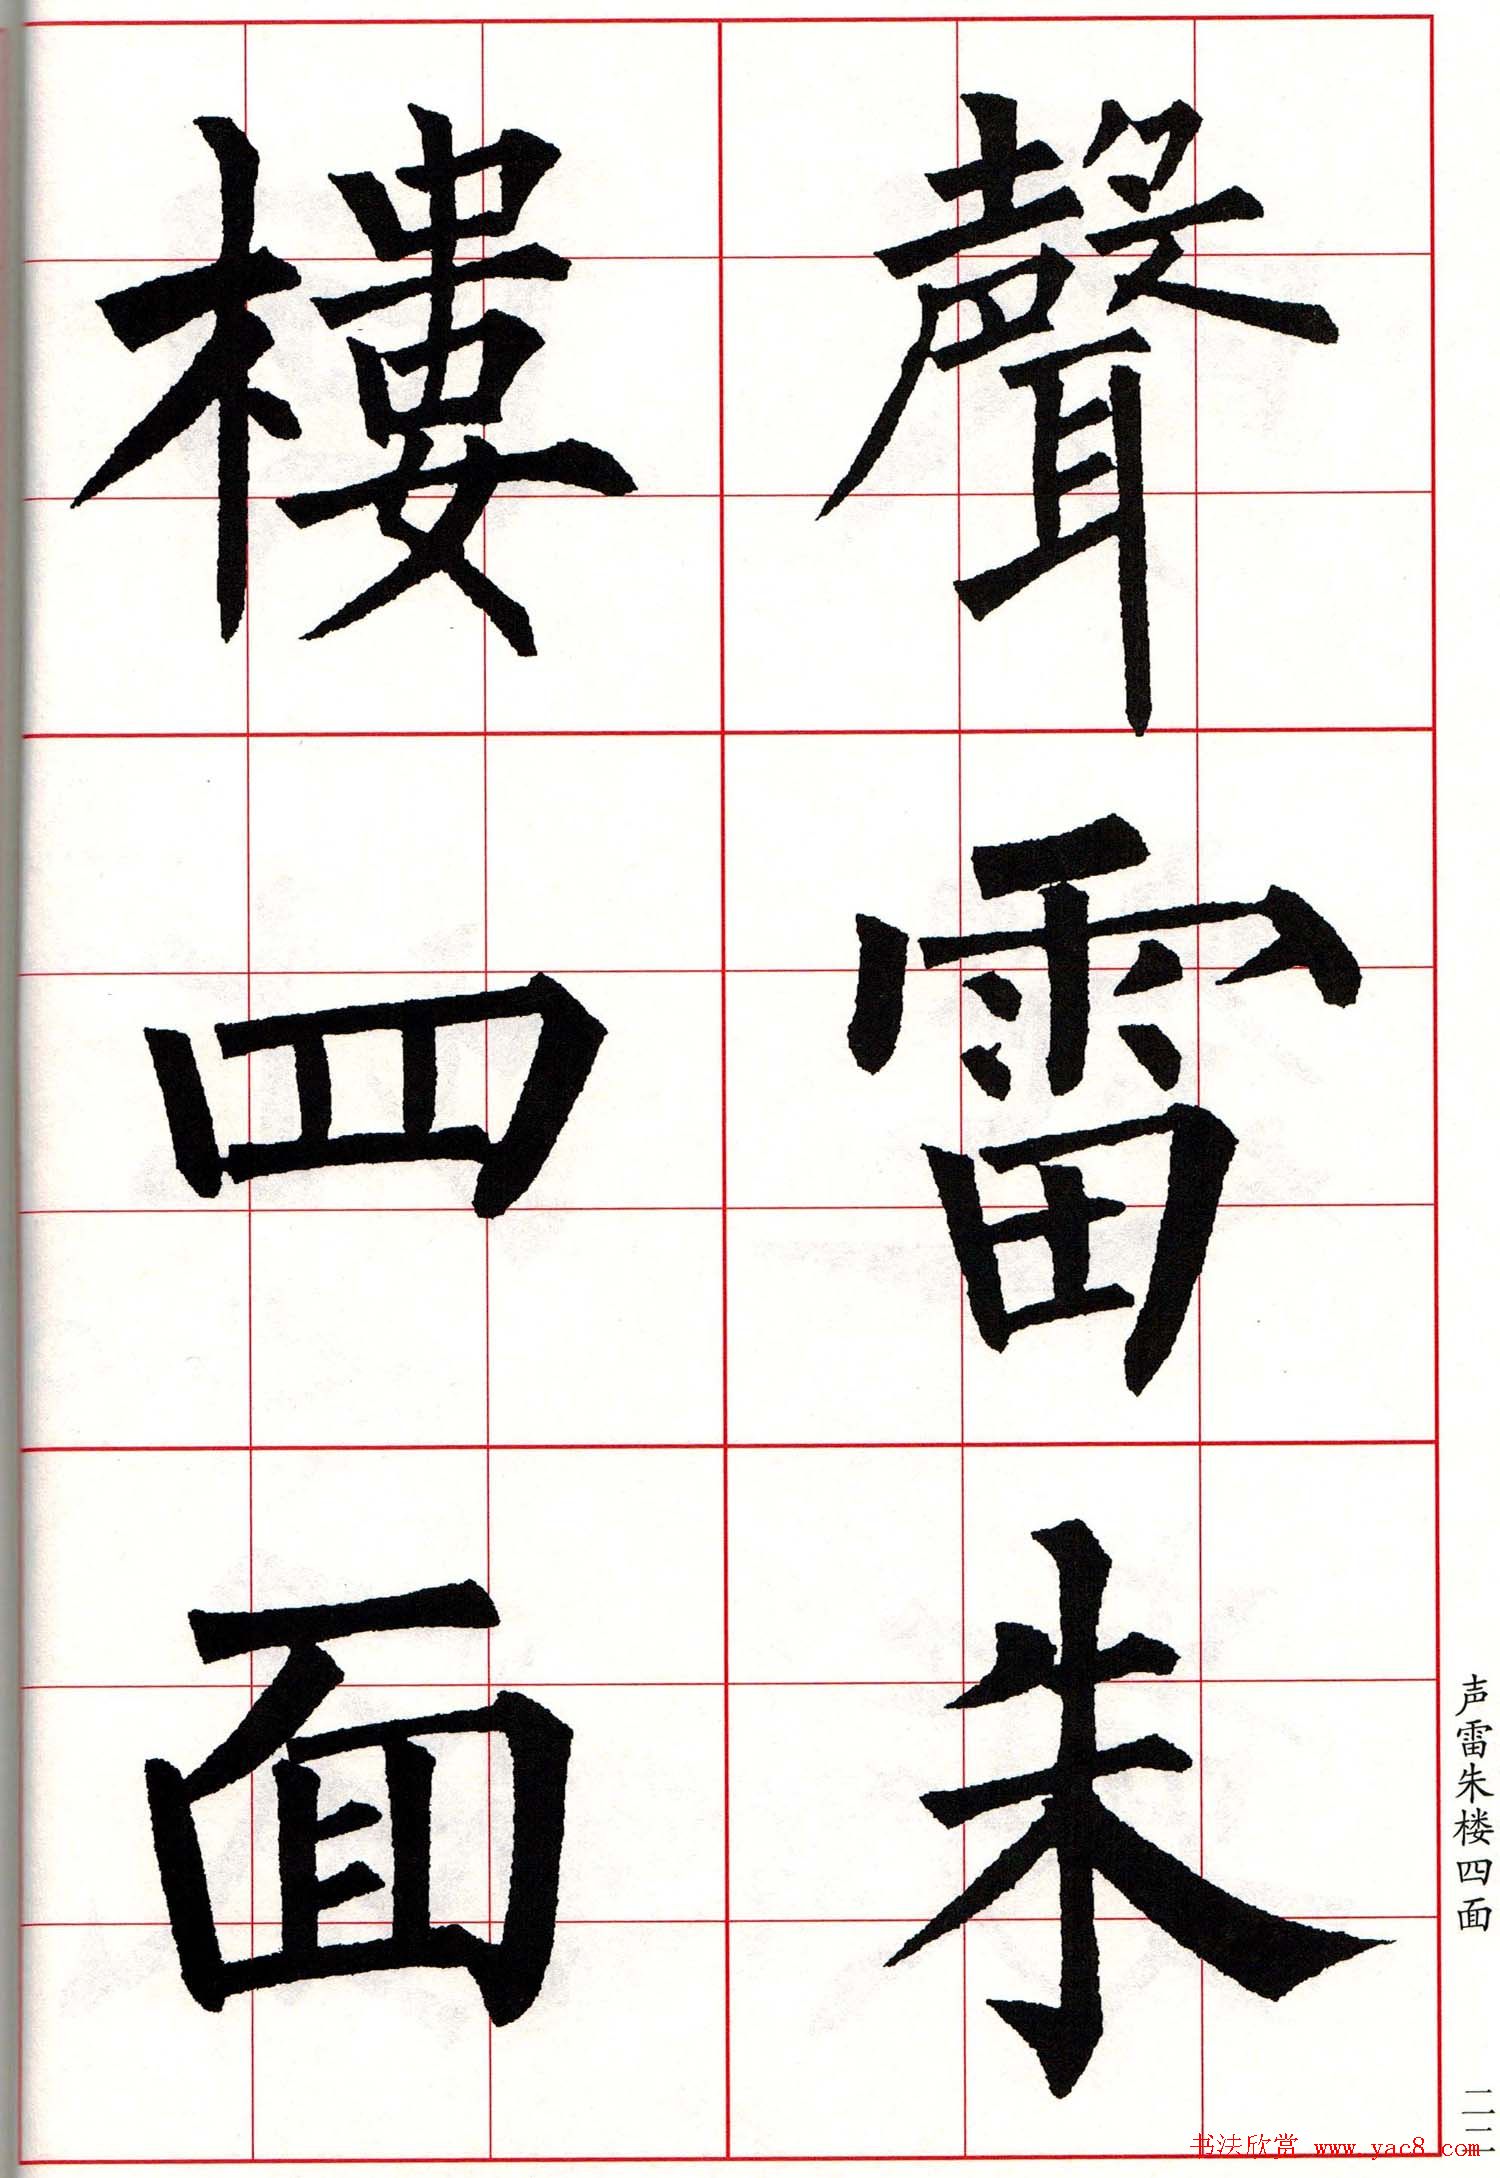 聲雷朱
樓四面
声雷朱楼四面
二二
书法欣赏 www.yac8.com